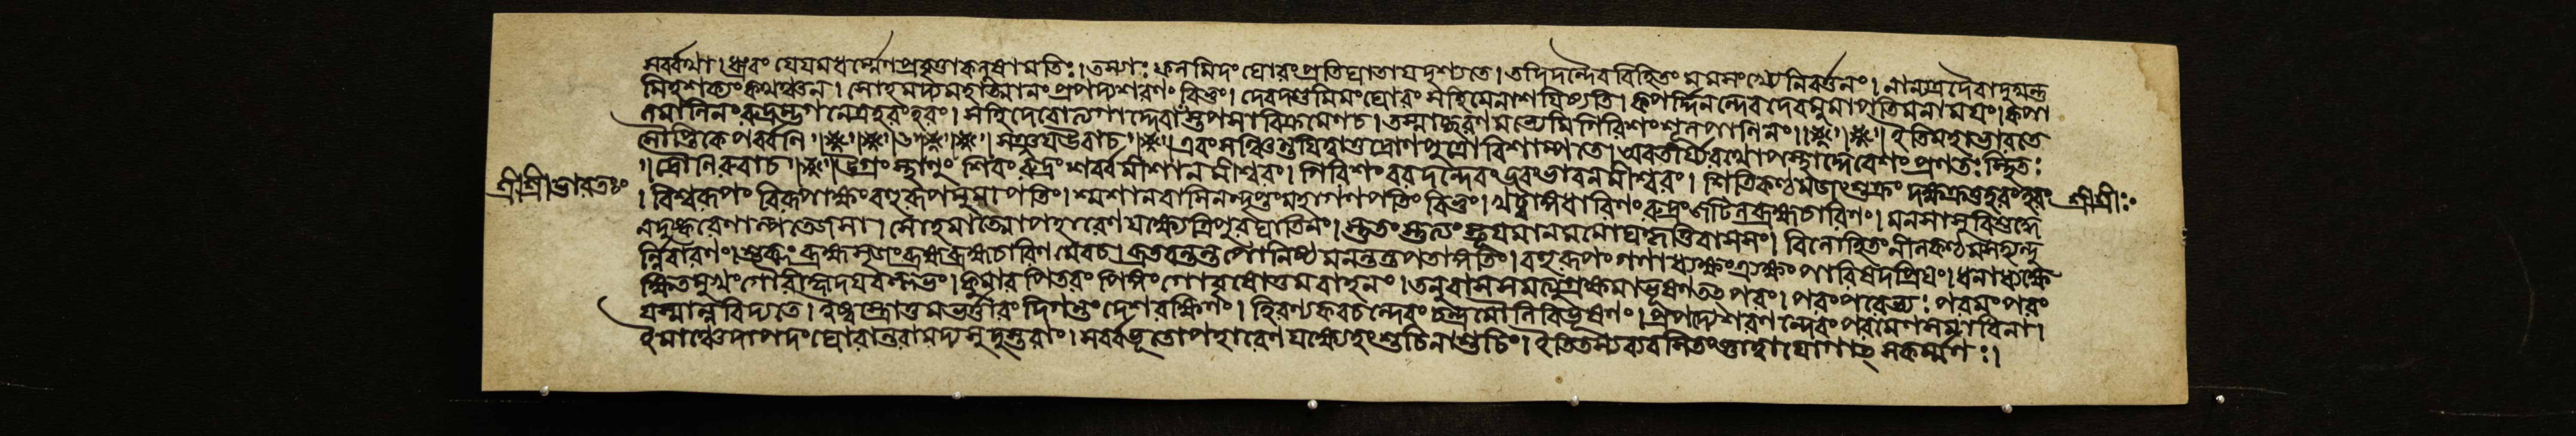 সর্ব্বথা। ধ্রুবং যেয়মধর্ম্মেণপ্রবৃত্তাকলুষামতিঃ। তস্যাঃ ফলমিদং ঘোরংপ্রতিঘাতায়দৃশ্যতে। তদিদন্দৈববিহিতং মমসংখ্যেনিবর্ত্তনং। নান্যত্রদৈবাদুদ্যন্তু
মিহশক্যংকথঞ্চন। সোহমদ্যমহাত্মানং প্রপদ্যেশরণং বিভুং। দৈবদণ্ডমিমংঘোরং সহিমেনাশয়িষ্যতি। কপর্দ্দিনন্দেবদেবমুমাপতিমনাময়ং। কপা
লমালিনংরুদ্রম্ভগনেত্রহরংহরং। সহিদেবোত্যগাদ্দেবাঁস্তপসাবিক্রমেণচ। তস্মাচ্ছরণমভ্যেমিগিরিশংশূলপাণিনং। ইতিমহাভারতে
সৌপ্তিকেপর্ব্বণি। সঞ্জয়উবাচ। এবংসঞ্চিন্তয়িত্বাতুদ্রোণপুত্রোবিশাম্পতে। অবতীর্য্যরথোপস্থাদ্দেবেশংপ্রণতঃস্থিতঃ
। দ্রৌণিরুবাচ। উগ্রং স্থাণুং শিবং রুদ্রং শর্ব্বমীশানমীশ্বরং। গিরিশং বরদন্দেবং ভবংভাবনমীশ্বরং। শিতিকণ্ঠমজংশুক্রং দক্ষক্রতুহরংহরং
শ্রীশ্রীভারতঃ
শ্রীশ্রীঃ
। বিশ্বরূপং বিরূপাক্ষং বহুরূপমুমাপতিং। শ্মশানবাসিনন্দৃপ্তংমহাগণপতিং বিভুং। খট্বাঙ্গধারিণংরুদ্রংজটিলব্রহ্মচারিণং। মনসাসুবিশুদ্ধে
নদুষ্করেণাল্পতেজসা। সোহমাত্মোপহারেণযক্ষ্যেত্রিপুরঘাতিনং। স্তুতংস্তুত্যংস্তূয়মানমমোঘংকৃত্তিবাসসং। বিলোহিতংনীলকণ্ঠমসহ্যন্দু
র্ন্নিবারণং। শুক্রং ব্রহ্মসৃজংব্রহ্মব্রহ্মচারিণমেবচ। ব্রতবন্তন্তপোনিষ্ঠমনন্তন্তপতাঙ্গতিং। বহুরূপং গণাধ্যক্ষংত্র্যক্ষং পারিষদপ্রিয়ং। ধনাধ্যক্ষে
ক্ষিতমুখংগৌরীহৃদয়বল্লভং। কুমারপিতরং পিঙ্গং গোবৃষোত্তমবাহনং। তনুবাসসমত্যুগ্রমুমাভূষণতৎপরং। পরংপরেভ্যঃ পরমংপরং
যস্মান্নবিদ্যতে। ইষ্বস্ত্রোত্তমভর্ত্তারং দিগন্তং দেশরক্ষিণং। হিরণ্যকবচন্দেবং চন্দ্রমৌলিবিভূষণং। প্রপদ্যেশরণন্দেবংপরমেণসমাধিনা।
ইমাঞ্চেদাপদংঘোরান্তরাম্যদ্যসুদুস্তরাং। সর্ব্বভূতোপহারেণযক্ষ্যেহংশুচিনাশুচিং। ইতিতস্যব্যবসিতংজ্ঞাত্বাযোগাৎসুকর্ম্মণঃ।